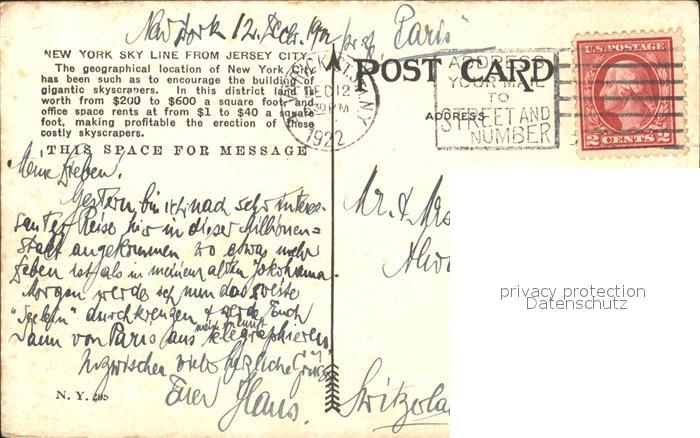 New York 12. Dechr. 192 per sf. "Paris"
NEW YORK SKY LINE FROM JERSEY CITY.
The geographical location of New York City
has been such as to encourage the building of
gigantic skyscrapers. In this district land is
worth from $200 to $600 a square foot and
office space rents at from $1 to $40 a square
foot, making profitable the erection of these
costly skyscrapers.
THIS SPACE FOR MESSAGE
N.Y.
DEC 12
30 PM
1922
POST CARD
ADDRESS
ADDRESS
YOUR MAIL
TO
STREET AND
NUMBER
U.S. POSTAGE
2 CENTS 2
Meine Lieben!
Gestern bin ich nach sehr interes-
santer Reise hier in dieser Millionen=
stadt angekommen, wo etwas mehr
Leben ist als in meinem alten Yokohama.
Morgen werde ich nun das zweite
"Seelein" durchkreuzen & werde Euch
dann von Paris aus meine Ankunft telegraphieren.
Inzwischen viele herzliche Grüsse
Euer Hans.
N. Y. 205
Mr. & Mrs
Switzerla
privacy protection
Datenschutz